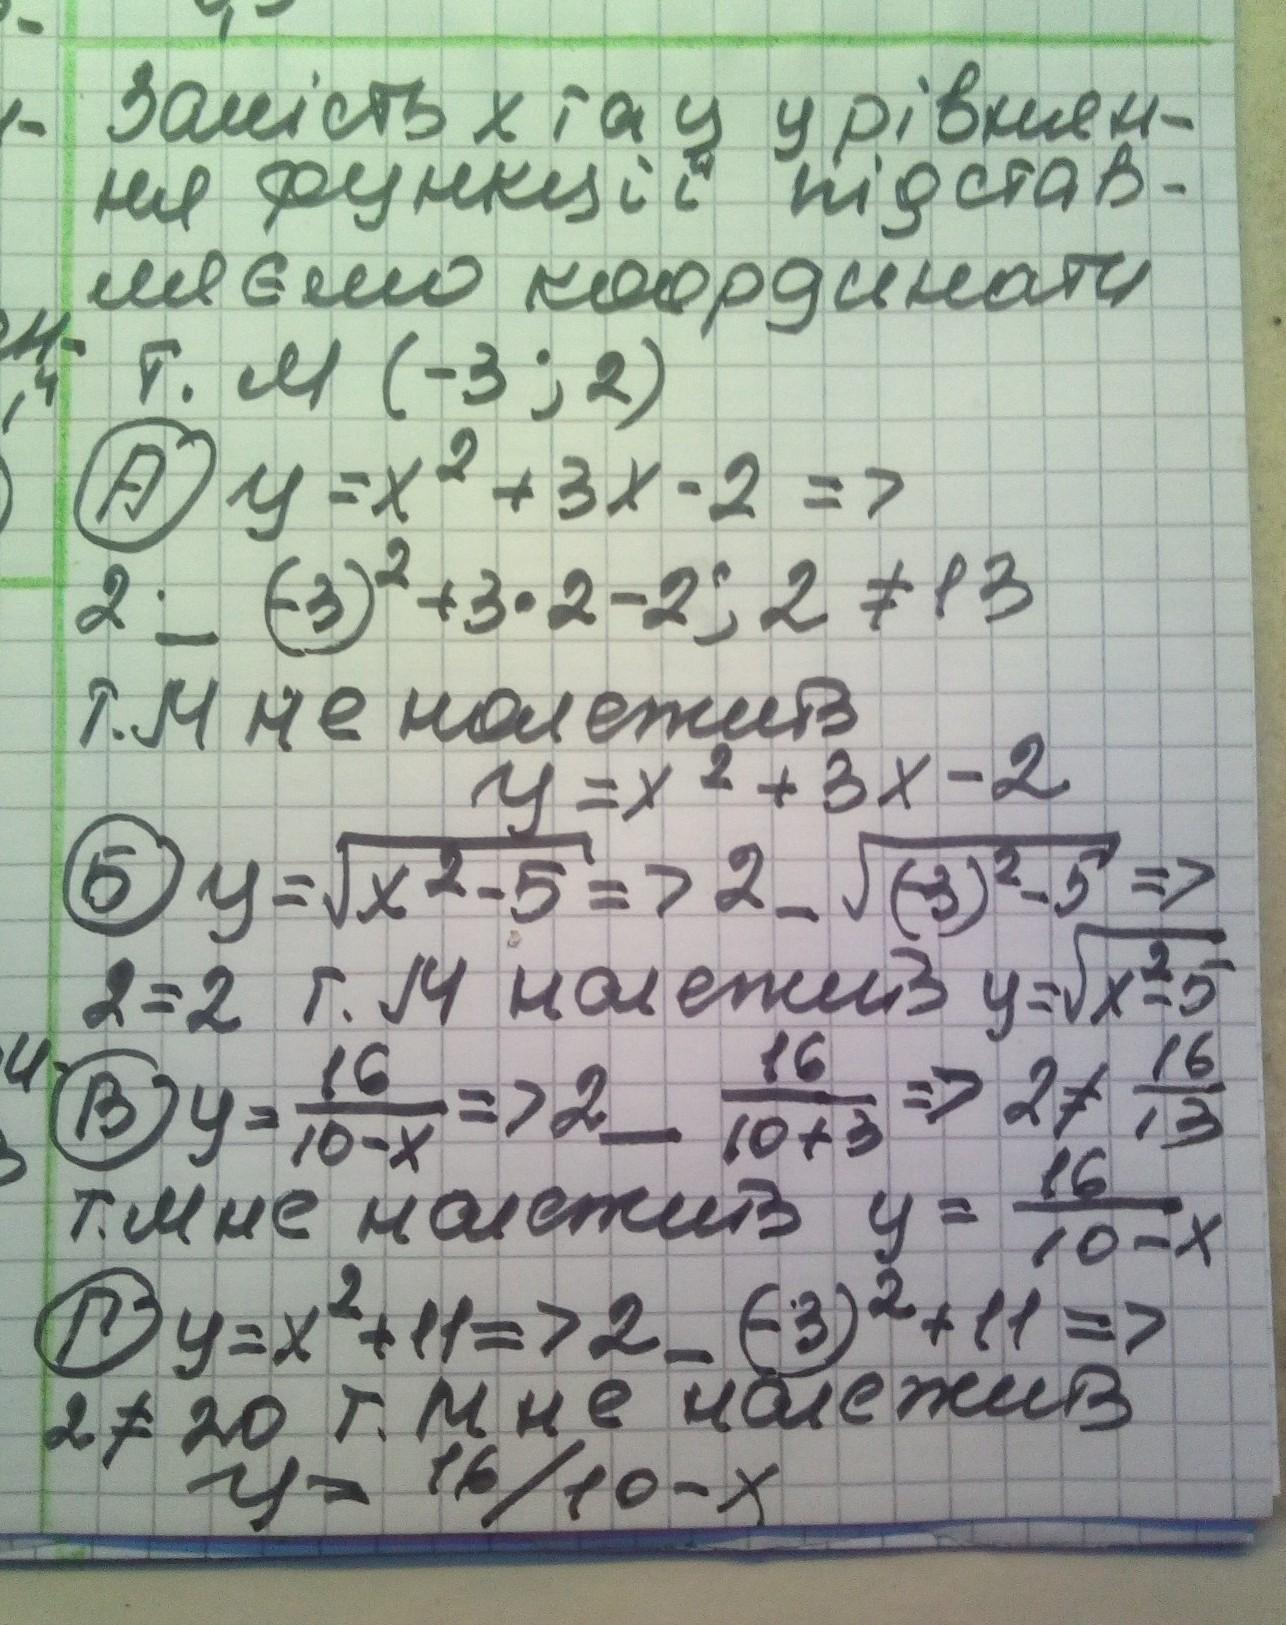 Замість х та у у рівнян-
ня функції підстав-
ляємо координати
т. М (-3; 2)
А y = x² + 3x - 2 =>
2 _ (-3)² + 3·2 - 2; 2 ≠ 13
т. М не належить
y = x² + 3x - 2
Б y = √(x² - 5) => 2 _ √((-3)² - 5) =>
2 = 2 т. М належить y = √(x² - 5)
В y = 16/(10 - x) => 2 _ 16/(10 + 3) => 2 ≠ 16/13
т. М не належить y = 16/(10 - x)
Г y = x² + 11 => 2 _ (-3)² + 11 =>
2 ≠ 20 т. М не належить
y = 16/10 - x